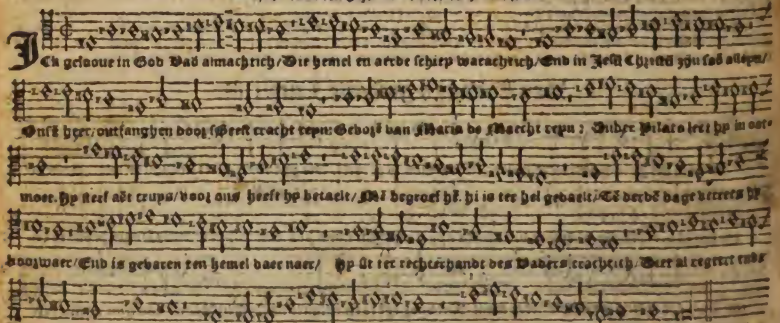 ICk geloove in God Vad almachtich/Die hemel en aerde schiep waerachtich/End in Jesu Christū zijn sos alleyn/
Onsē heer/ontfanghen door sGeest cracht reyn: Gebore van Maria de Maecht reyn: Onder Pilato leet hy in oot-
moet. Hy sterf aēt cruys/voor ons heeft hy betaelt/Mē begroef hē. hi is ter hel gedaelt/Tē derdē dage verrees hy
voorwaer/End is gevaren ten hemel daer naer/ Hy sit ter rechterhandt des Vaders crachtich/Die't al regeert ende